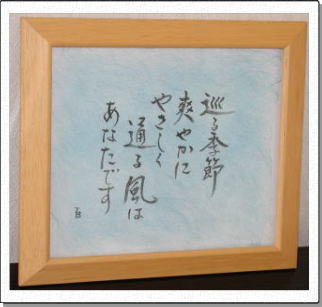 巡る季節
爽やかに
やさしく
通る風は
あなたです